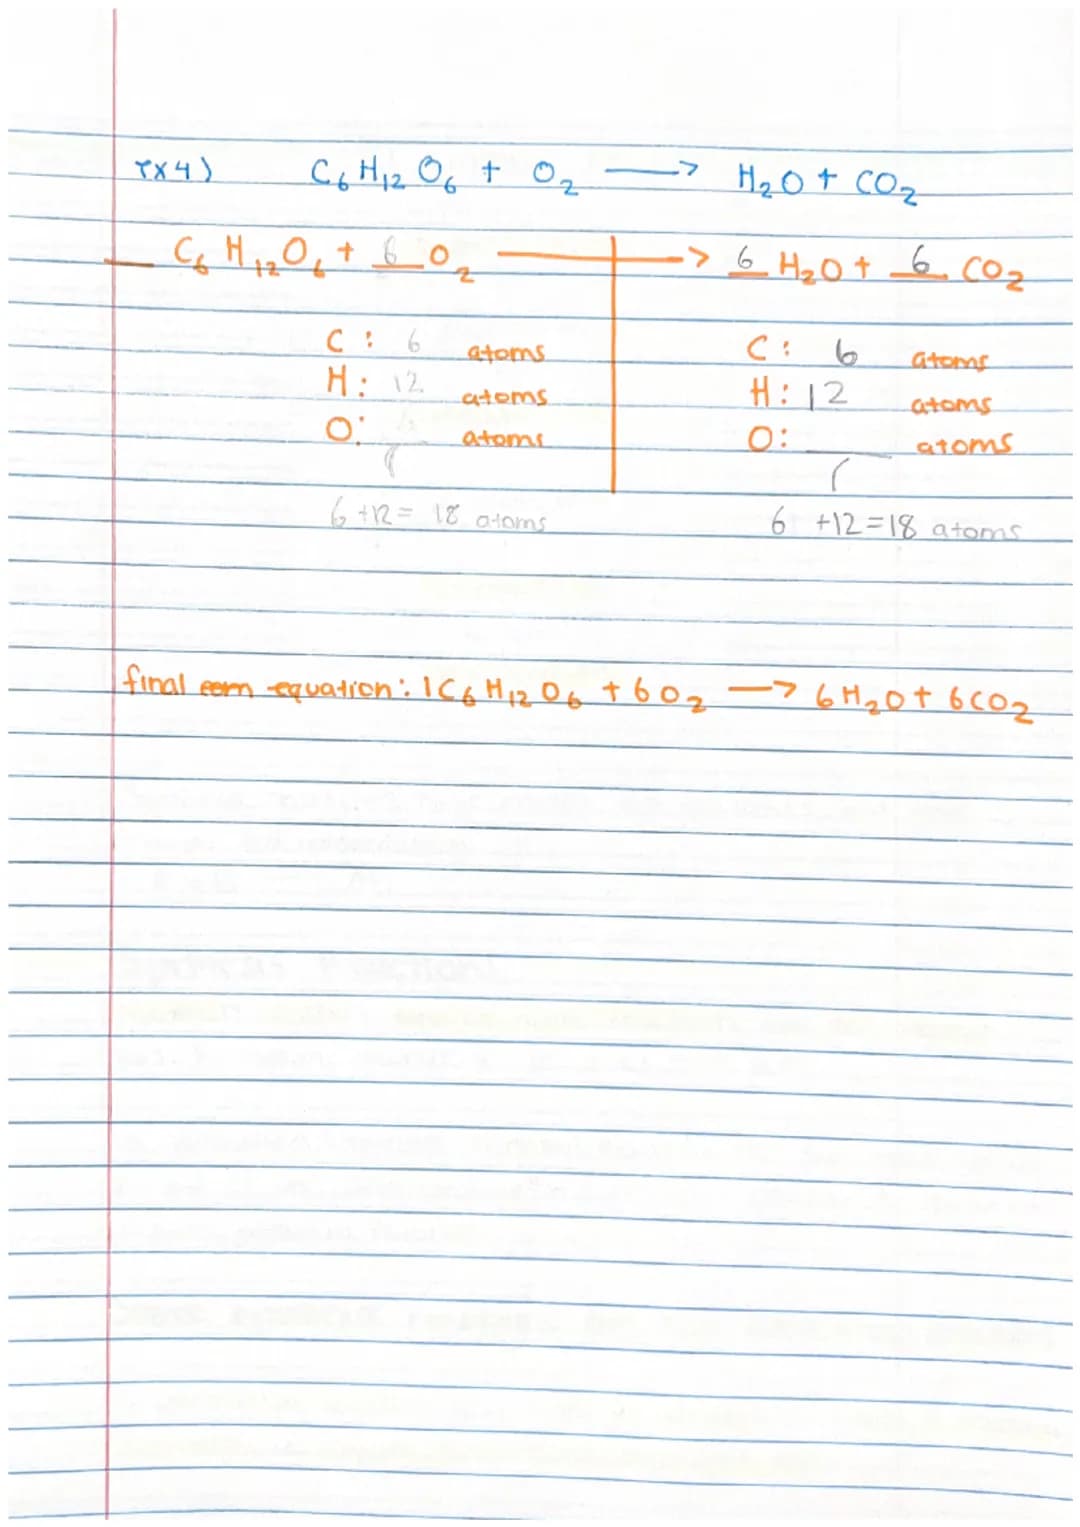 Ex4) C₆H₁₂O₆ + O₂ → H₂O + CO₂
__ C₆H₁₂O₆ + 6 O₂ → 6 H₂O + 6 CO₂
C: 6 atoms
H: 12 atoms
O: atoms
6+12= 18 atoms
C: 6 atoms
H: 12 atoms
O: __ atoms
6 +12=18 atoms
final equation: 1C₆H₁₂O₆ + 6O₂ → 6H₂O + 6CO₂